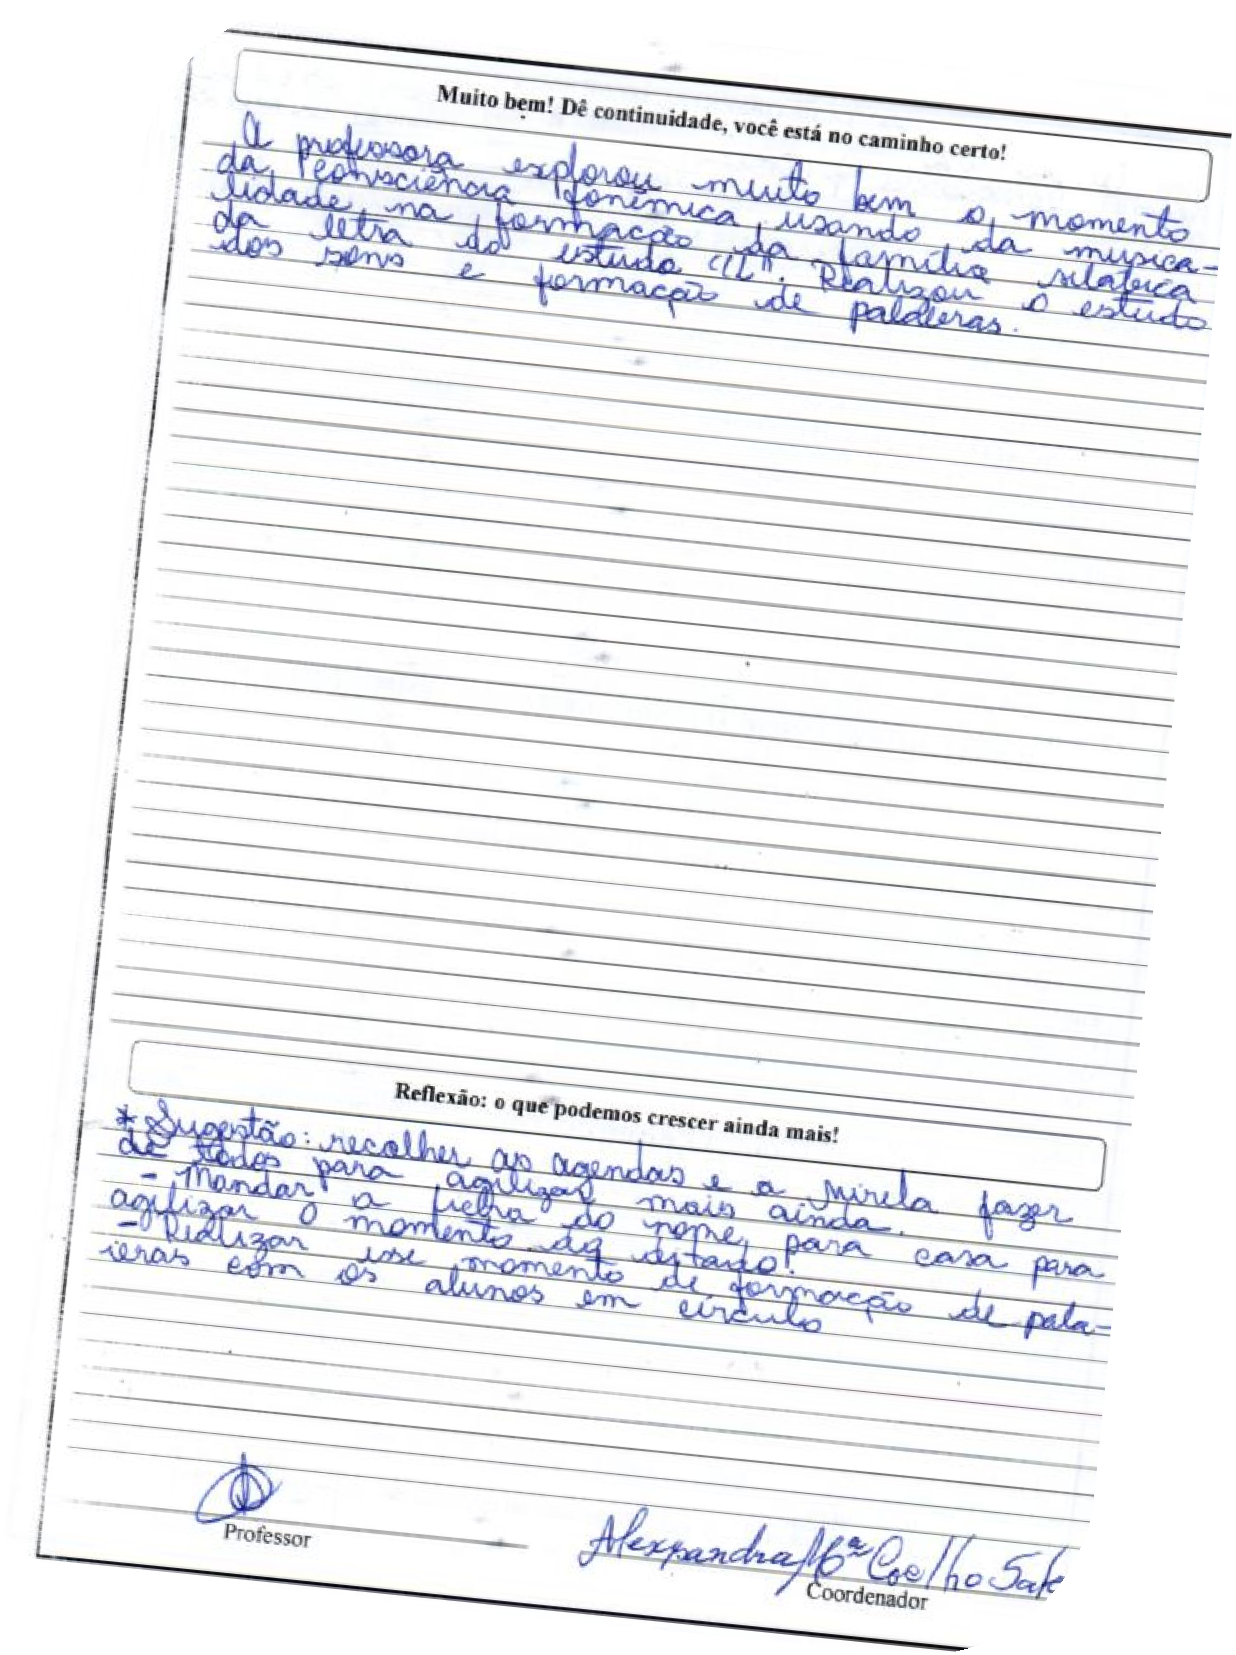 Muito bem! Dê continuidade, você está no caminho certo!
A professora explorou muito bem o momento
da consciência fonêmica, usando da musica-
lidade na formação da família silábica
da letra do estudo "L". Realizou o estudo
dos sons e formação de palavras.
Reflexão: o que podemos crescer ainda mais!
* Sugestão: recolher as agendas e a Mirela fazer
de todos para agilizar mais ainda.
- Mandar a ficha do nome para casa para
agilizar o momento do ditado!
- Realizar esse momento de formação de pala-
vras com os alunos em círculo
Professor
Alexpandra Mª Coelho
Coordenador